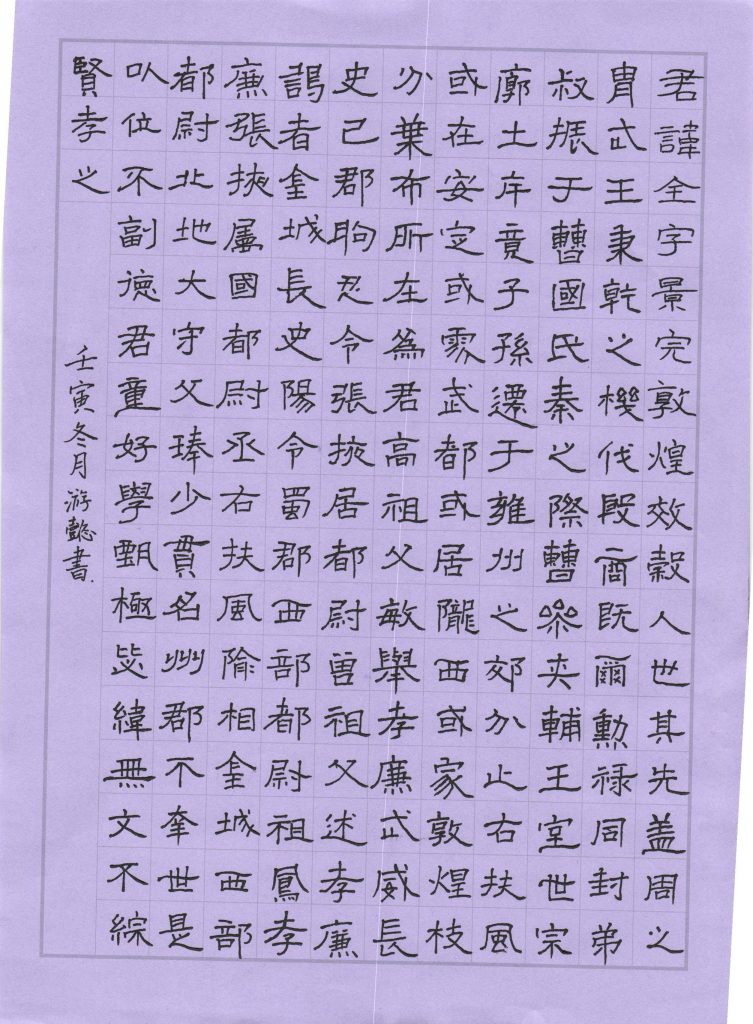 君諱全字景完敦煌效穀人世其先盖周之
胄武王秉乾之機伐殷商既爾勳禄同封弟
叔振于曹國氏秦之際曹參夾輔王室世宗
廓土斥竟子孫遷于雍州之郊分止右扶風
或在安定或處武都或居隴西或家敦煌枝
分葉布所在為君高祖父敏舉孝廉武威長
史巳郡朐忍令張掖居都尉曾祖父述孝廉
謁者金城長史陽令蜀郡西部都尉祖鳳孝
廉張掖屬國都尉丞右扶風隃相金城西部
都尉北地大守父琫少貫名州郡不幸世是
以位不副德君童好學甄極毖緯無文不綜
賢孝之
壬寅冬月游懿書